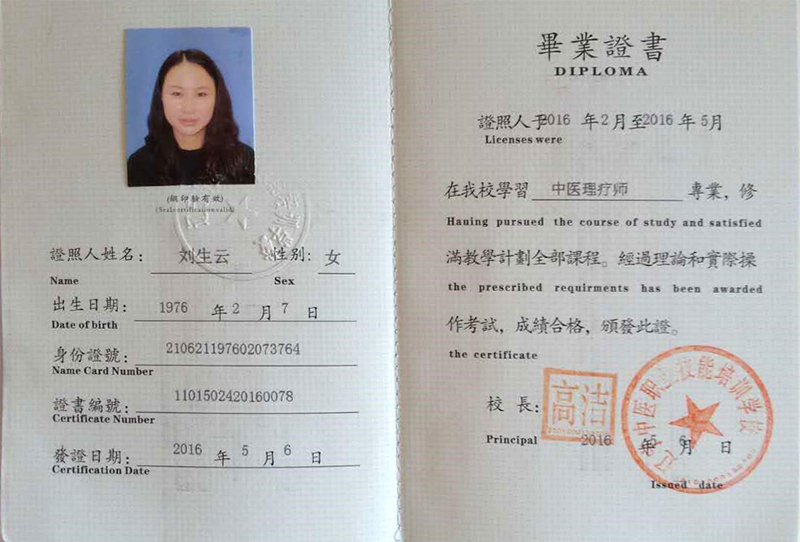 (鋼印驗有效)
(Seal certificaionvalid)
證照人姓名： 刘生云 性别: 女
Name Sex
出生日期: 1976 年 2 月 7 日
Date of birth
身份證號: 210621197602073764
Name Card Number
證書編號: 1101502420160078
Certificate Number
發證日期: 2016 年 5 月 6 日
Certification Date
畢業證書
DIPLOMA
證照人于2016 年2月至2016年5月
Licenses were
在我校學習 中医理疗师 專業，修
Hauing pursued the course of study and satisfied
滿教學計劃全部課程。經過理論和實際操
the prescribed requirments has been awarded
作考試，成績合格，頒發此證。
the certificate
校 長: 高洁
Principal 2016 年 5 月 6 日
Issued date
中医职业技能培训学校